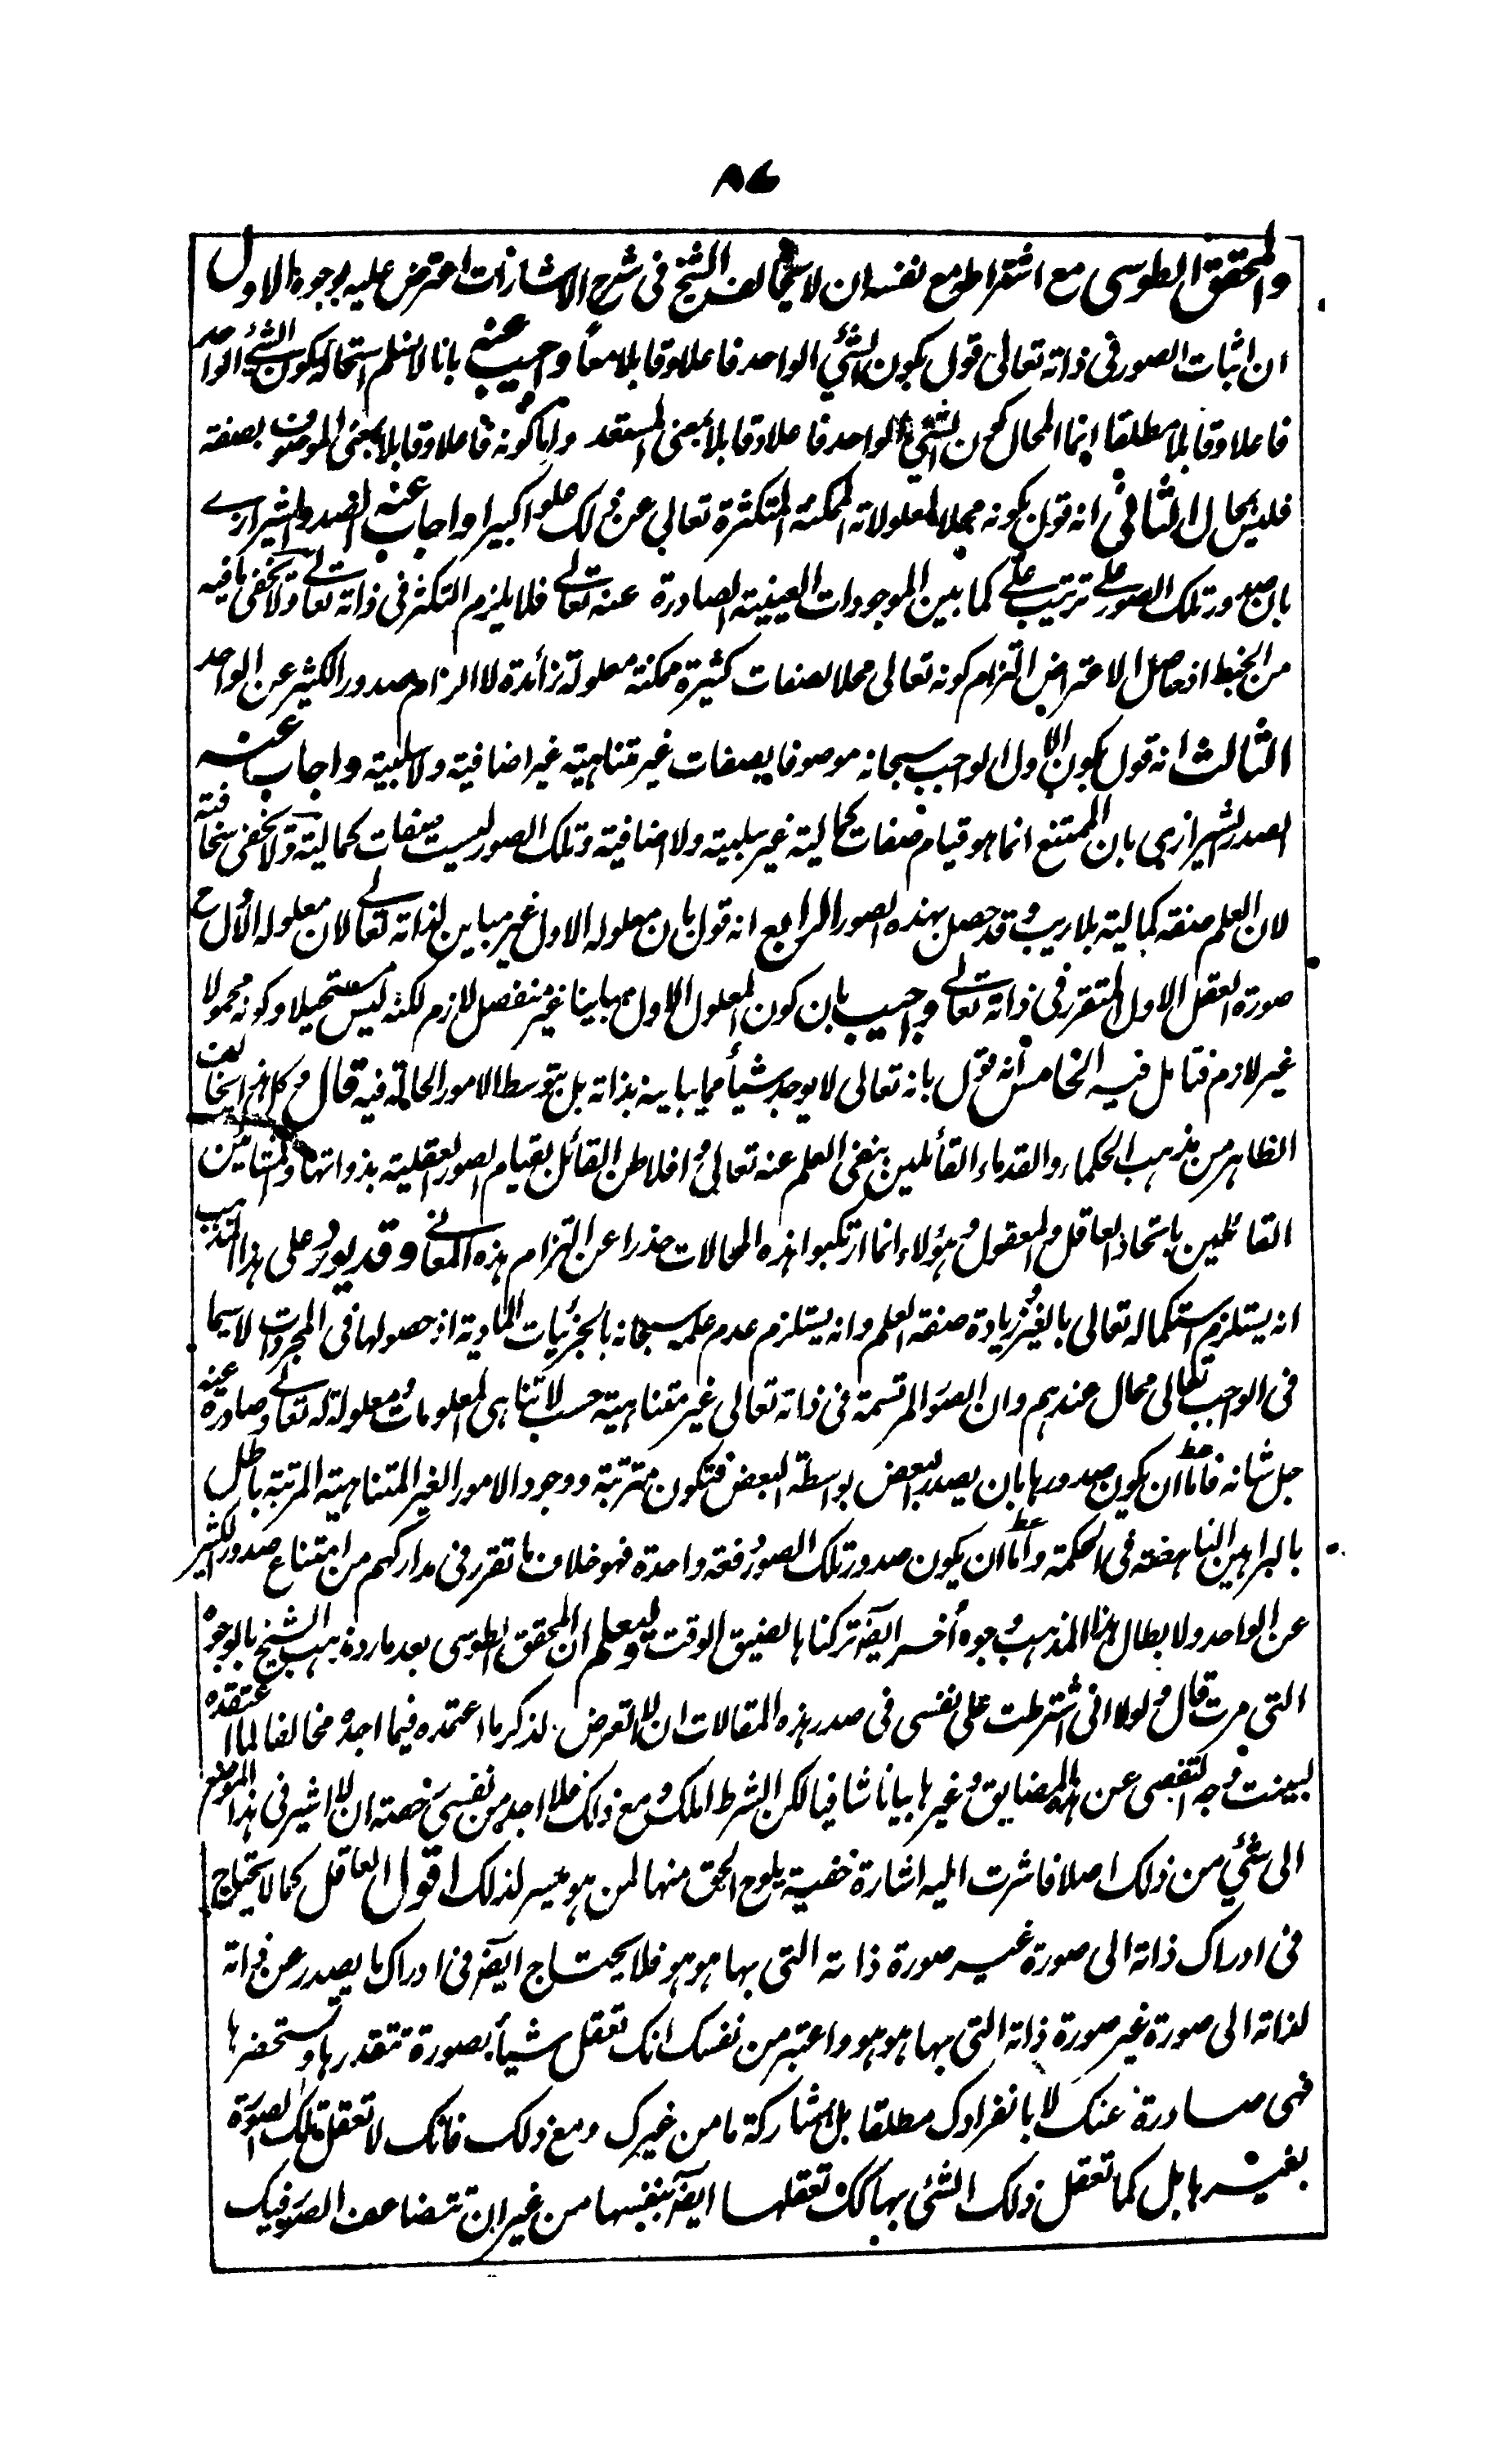 ٨٧
والمحقق الطوسي مع اشتراطه مع نفسه ان لا يخالف الشيخ في شرح الاشارات اعترض عليه بوجوه الاول
ان اثبات الصور في ذاته تعالى قول بكون الشئي الواحد فاعلا وقابلا معاً واجيب عنه بانا لا نسلم استحالة كون الشئ الواحد
فاعلا وقابلا مطلقا انما المحال كون الشئي الواحد فاعلا وقابلا بمعنى المستعد واما كونه فاعلا وقابلا بمعنى الموصوف بصفته
فليس بمحال الثاني انه قول بكونه محلا لمعلولاته الممكنة المتكثرة تعالى عن ذلك علوا كبيرا واجاب عنه الصدر الشيرازي
بان صدور تلك الصور على ترتيب علي كما بين الموجودات العينية الصادرة عنه تعالى فلا يلزم التكثر في ذاته تعالى ولا يخفى ما فيه
من الخبط اذ حاصل الاعتراض التزام كونه تعالى محلا لصفات كثيرة ممكنة معلولة زائدة لا الزام صدور الكثير عن الواحد
الثالث انه قول بكون الاول الواجب سبحانه موصوفا بصفات غير متناهية غير اضافية ولا سلبية واجاب عنه
الصدر الشيرازي بان الممتنع انما هو قيام صفات كمالية غير سلبية ولا اضافية وتلك الصور ليست صفات كمالية ولا يخفى سخافته
لان العلم صفة كمالية بلا ريب وقد حصل بهذه الصور الرابع انه قول بان معلوله الاول غير مباين لذاته تعالى لان معلوله الاول ح
صورة العقل الاول المتقرر في ذاته تعالى واجيب بان كون المعلول الاول مباينا غير منفصل لازم لكنه ليس مستحيلا وكونه محمولا
غير لازم فتامل فيه الخامس انه قول بانه تعالى لا يوجد شيأ مما يباينه بذاته بل بتوسط الامور الحالة فيه قال وكل هذه يخالف
الظاهر من مذهب الحكماء والقدماء القائلين بنفي العلم عنه تعالى وافلاطن القائل بقيام الصور العقلية بذواتها والمشائين
القائلين باتحاد العاقل والمعقول وهؤلاء انما ارتكبوا هذه المحالات حذرا عن التزام هذه المعاني وقد يورد على هذا المذهب
انه يستلزم استكماله تعالى بالغير وزيادة صفة العلم وانه يستلزم عدم علمه سبحانه بالجزئيات المادية اذ حصولها في المجردات لا سيما
في الواجب تعالى محال عندهم وان الصور المرتسمة في ذاته تعالى غير متناهية حسب لا تناهي المعلومات ومعلولة له تعالى وصادرة عنه
جل شانه فاما ان يكون صدورها بان يصدر البعض بواسطة البعض فتكون مترتبة ووجود الامور الغير المتناهية المرتبة باطل
بالبراهين الناهضة في الحكمة واما ان يكون صدور تلك الصور دفعة واحدة فهو خلاف ما تقرر في مداركهم من امتناع صدور الكثير
عن الواحد ولابطال هذا المذهب وجوه أخر ايضا تركناها لضيق الوقت وليعلم ان المحقق الطوسي بعد ما رد مذهب الشيخ بالوجوه
التي مرت قال ولولا اني اشترطت على نفسي في صدر هذه المقالات ان لا اتعرض لذكر ما اعتمده فيما اجده مخالفا لما اعتقده
لبينت وجه التفصى عن هذه المضايق وغيرها بيانا شافيا لكن الشرط املك ومع ذلك فلا اجد من نفسي رخصة ان لا اشير في هذا الموضع
الى شئي من ذلك اصلا فاشرت اليه اشارة خفية يلوح الحق منها لمن هو ميسر لذلك اقول العاقل كما لا يحتاج
في ادراك ذاته الى صورة غير صورة ذاته التي بها هو هو فلا يحتاج ايضا في ادراك ما يصدر عن ذاته
لذاته الى صورة غير صورة ذاته التي بها هو هو واعتبر من نفسك انك تعقل شيأ بصورة تتقدرها وتستحضرها
فهي صادرة عنك لا بانفرادك مطلقا بل بمشاركة ما من غيرك ومع ذلك فانك لا تعقل تلك الصورة
بغيرها بل كما تعقل ذلك الشئي بها كك تعقلها ايضا بنفسها من غير ان تتضاعف الصور فيك